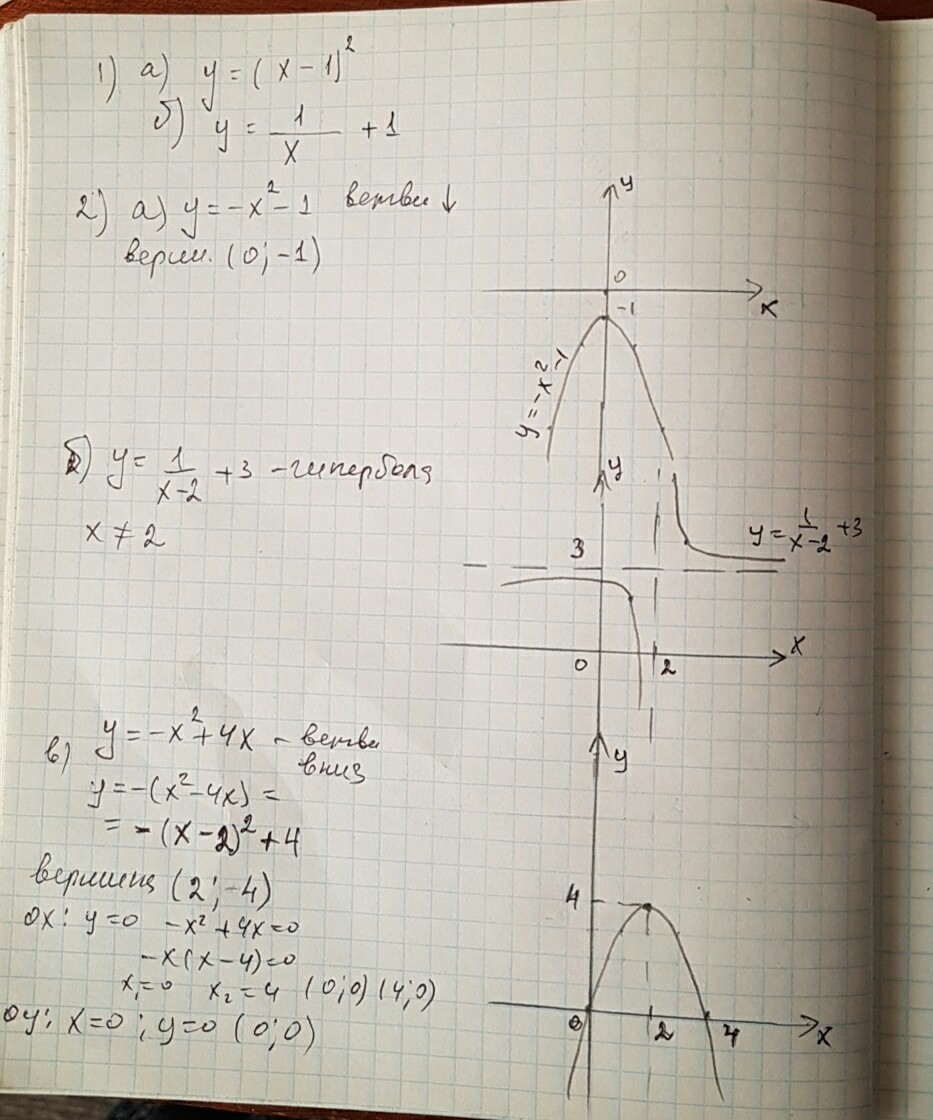 1) а) y = (x - 1)²
б) y = 1/x + 1
2) а) y = -x² - 1 ветви ↓
верш. (0; -1)
y
0
-1
x
y = -x² - 1
б) y = 1/(x-2) + 3 - гипербола
x ≠ 2
y
3
y = 1/(x-2) + 3
0
2
x
в) y = -x² + 4x - ветви
вниз
y = -(x² - 4x) =
= -(x - 2)² + 4
вершина (2; -4)
ox: y = 0 -x² + 4x = 0
-x(x - 4) = 0
x₁ = 0 x₂ = 4 (0; 0) (4; 0)
oy: x = 0; y = 0 (0; 0)
y
4
0
2
4
x